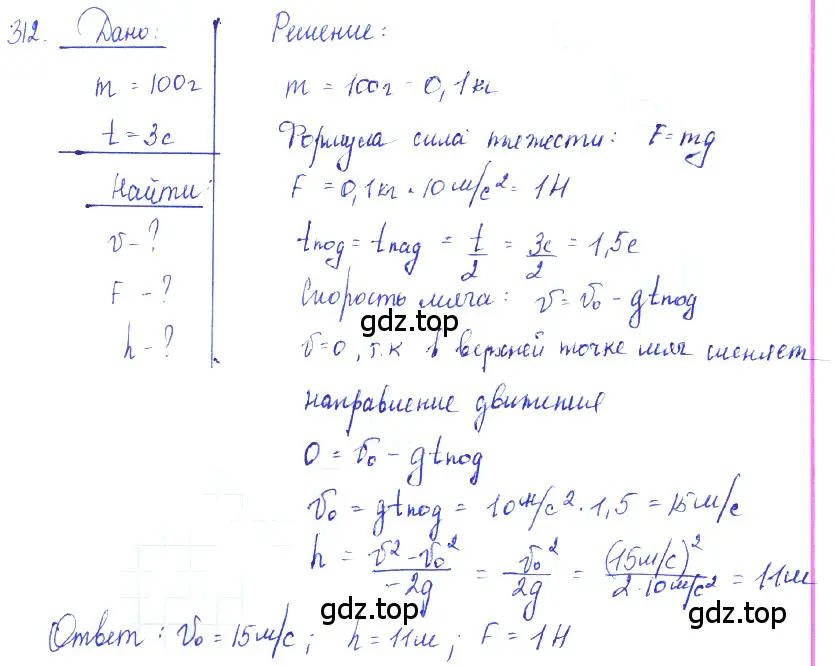 312. Дано: Решение:
m = 100г m = 100г = 0,1кг
t = 3с Формула сила тяжести: F = mg
Найти: F = 0,1кг · 10м/с² = 1Н
v - ? tпод = tпад = t/2 = 3с/2 = 1,5с
F - ? Скорость мяча: v = v₀ - gtпод
gdz.top
h - ? v=0, т.к в верхней точке мяч сменяет
направление движения
0 = v₀ - gtпод
v₀ = gtпод = 10м/с² · 1,5 = 15м/с
h = v² - v₀²/-2g = v₀²/2g = (15м/с)²/2·10м/с² = 11м
gdz.top
Ответ: v₀ = 15м/с; h = 11м; F = 1Н